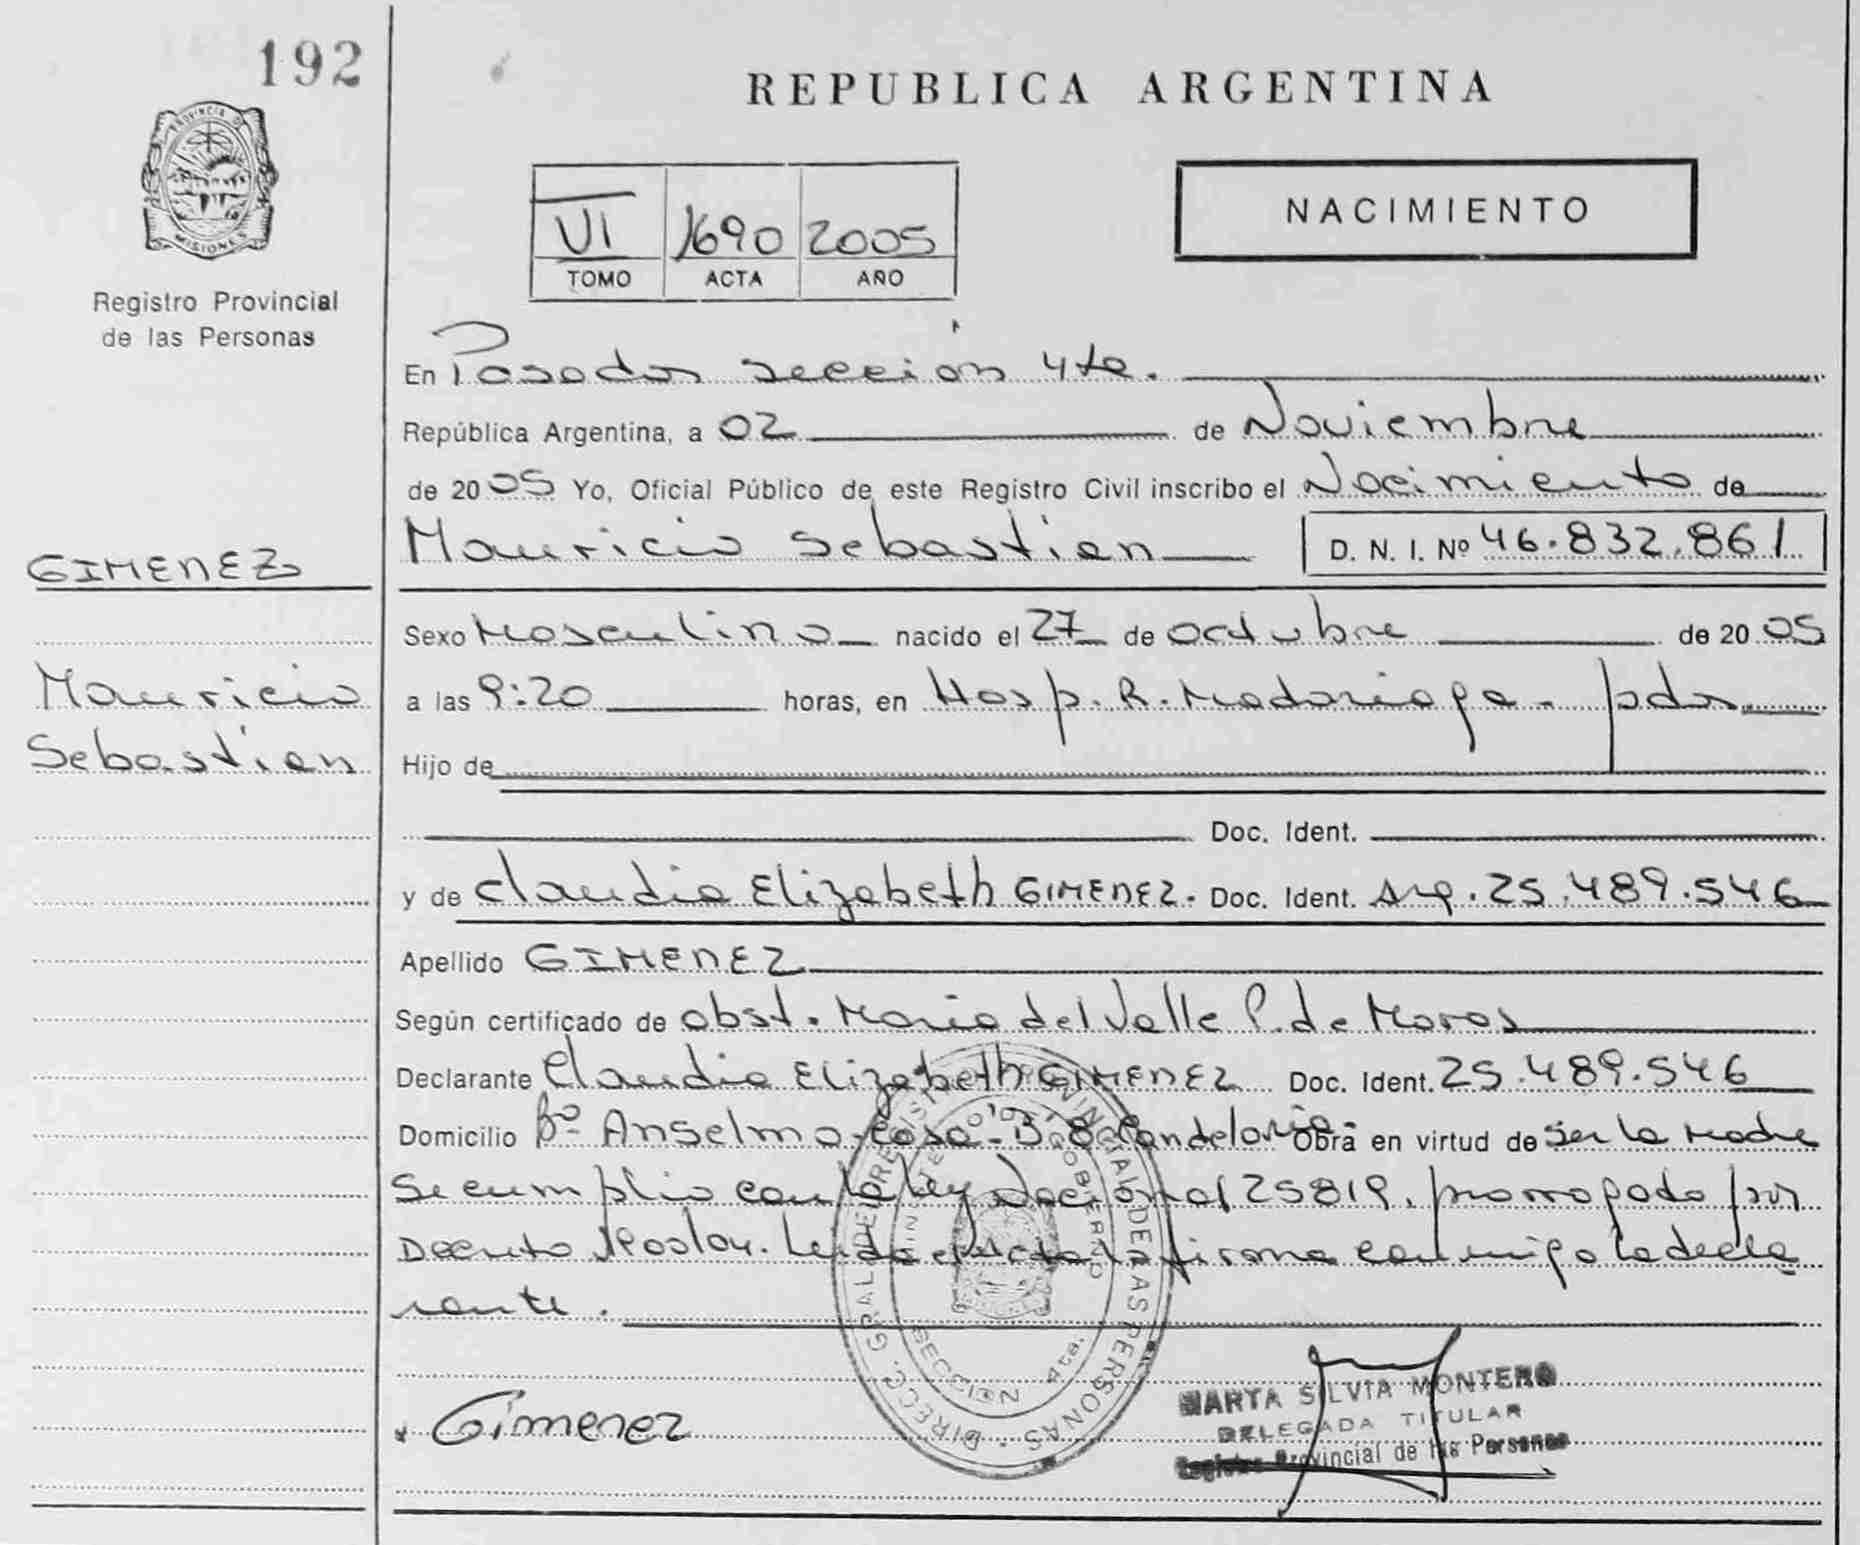 192
PROVINCIA DE
MISIONES
Registro Provincial
de las Personas
GIMENEZ
Mauricio
Sebastian
REPUBLICA ARGENTINA
VI 1690 2005
TOMO ACTA AÑO
NACIMIENTO
En Posadas sección 4ta.
República Argentina, a 02 de Noviembre
de 2005 Yo, Oficial Público de este Registro Civil inscribo el Nacimiento de
Mauricio Sebastian D. N. I. Nº 46.832.861
Sexo Masculino nacido el 27 de octubre de 2005
a las 9:20 horas, en Hosp. R. Madariaga - pdas
Hijo de
Doc. Ident.
y de Claudia Elizabeth GIMENEZ. Doc. Ident. Arg. 25.489.546
Apellido GIMENEZ
Según certificado de obst. Maria del Valle P. de Moras
Declarante Claudia Elizabeth GIMENEZ Doc. Ident. 25.489.546
Domicilio Bº Anselmo-casa-B.8 Candelaria Obra en virtud de ser la madre
Se cumplio con la ley Nacional 25819, prorrogado por
Decreto Leida el acta la firma conmigo la decla
rante.
DIRECC. GRAL. DEL REGISTRO PROVINCIAL DE LAS PERSONAS
MINISTERIO DE GOBIERNO
SECCION 4ta.
Gimenez
MARTA SILVIA MONTERO
DELEGADA TITULAR
Registro Provincial de las Personas